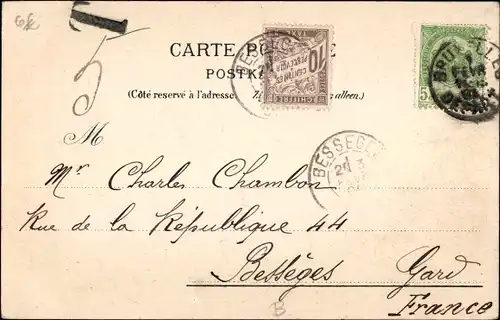 T
5
CARTE PO
POSTKA
(Côté réservé à l'adresse.
alleen.)
10
CENTIMES
À PERCEVOIR
CHIFFRE
TAXE
BESSEGES
5
BRUXELLES
M
Mr Charles Chambon
BESSEGES
Rue de la République 44
Bességes Gard
France
B